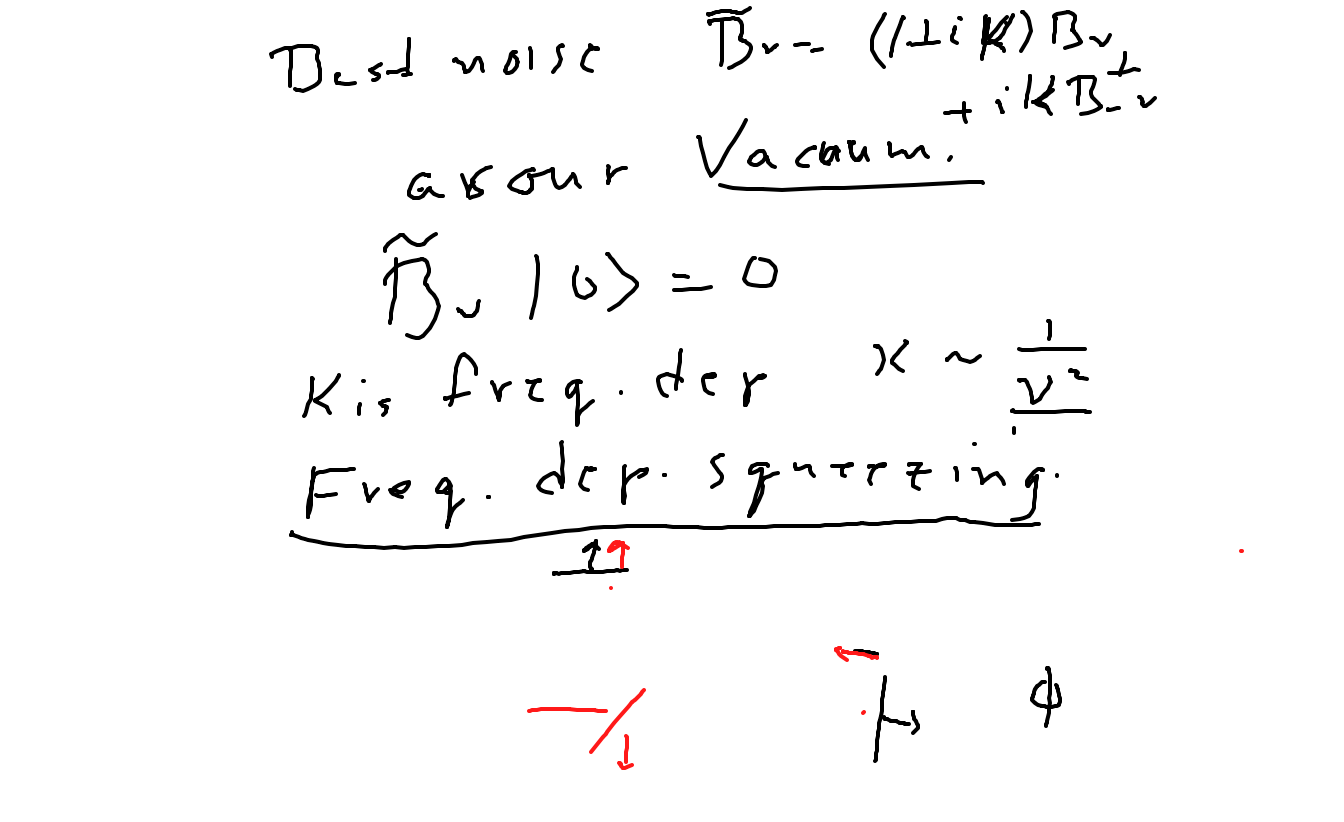 Best noise B̃ᵥ = (1±iK) Bᵥ
+ iK B₋ᵥ†
as our Vacuum.
B̃ᵥ |0> = 0
K is freq. dep K ~ 1/ν²
Freq. dep. squeezing.
ϕ